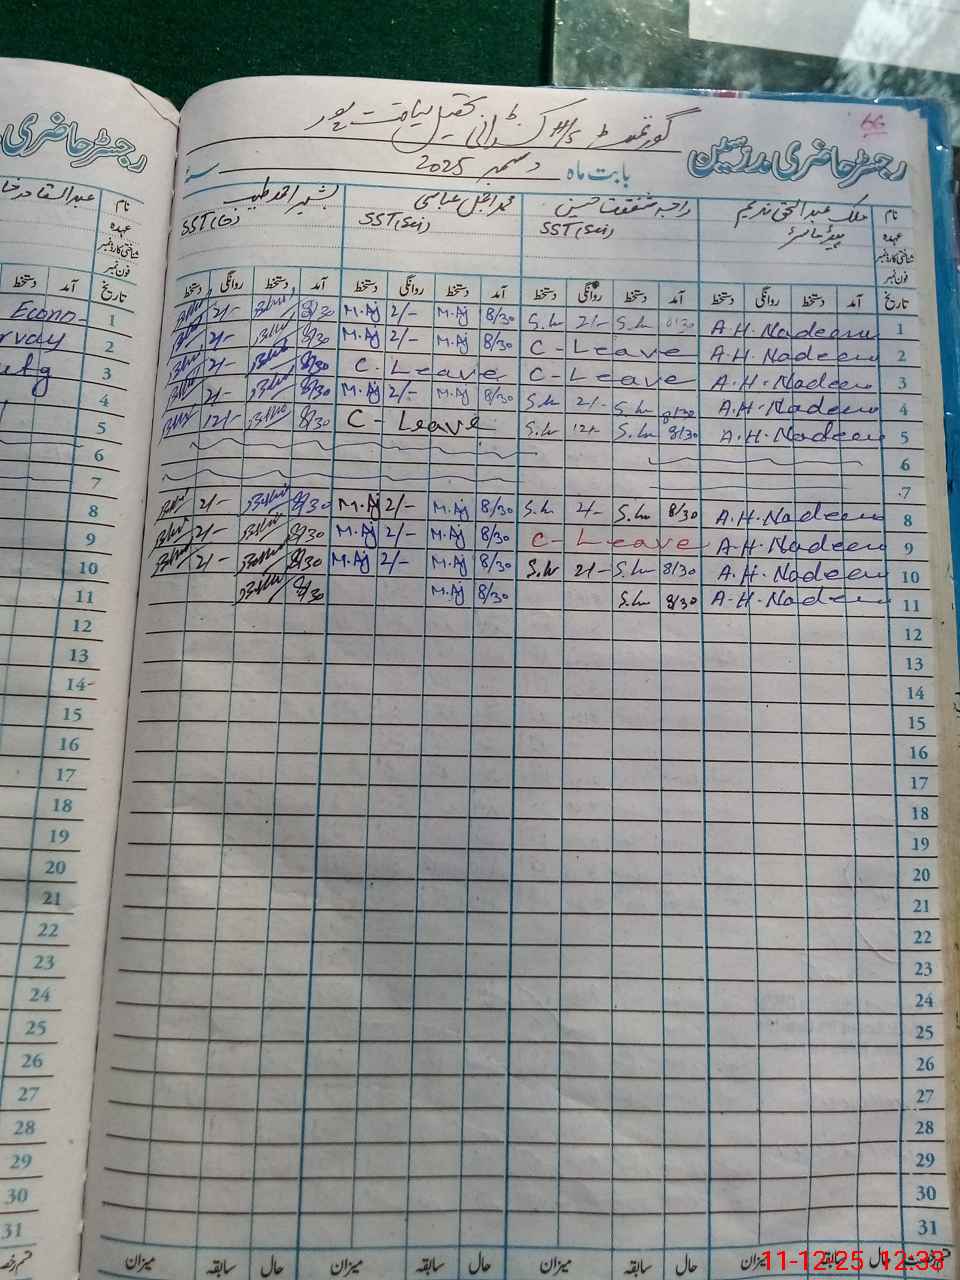 66
گورنمنٹ
رجسٹر حاضری مدرسین
بابت ماہ دسمبر 2025 سنہ
نام
عہدہ
شناختی کارڈ نمبر
فون نمبر
ملک عبدالحق ندیم
ہیڈ ماسٹر
راجہ شفقت حسین
SST (Sci)
محمد اجمل عباسی
SST (Sci)
بشیر احمد طیب
SST (G)
تاریخ آمد دستخط روانگی دستخط آمد دستخط روانگی دستخط آمد دستخط روانگی دستخط آمد دستخط روانگی دستخط
1 A.H.Nadeem S.h 2/- S.h M.Aj 2/- M.Aj 8/30 2/- 8/30
2 A.H.Nadeem C-Leave M.Aj 2/- M.Aj 8/30 2/- 8/30
3 A.H.Nadeem C-Leave C-Leave 2/- 8/30
4 A.H.Nadeem S.h 2/- S.h 8/30 M.Aj 2/- M.Aj 8/30 2/- 8/30
5 A.H.Nadeem S.h 12/- S.h 8/30 C-Leave 12/- 8/30
6
7
8 A.H.Nadeem S.h 2/- S.h 8/30 M.Aj 2/- M.Aj 8/30 2/- 8/30
9 A.H.Nadeem C-Leave M.Aj 2/- M.Aj 8/30 2/- 8/30
10 A.H.Nadeem S.h 2/- S.h 8/30 M.Aj 2/- M.Aj 8/30 2/- 8/30
11 A.H.Nadeem S.h 8/30 M.Aj 8/30 8/30
12
13
14
15
16
17
18
19
20
21
22
23
24
25
26
27
28
29
30
31
حال سابقہ میزان حال سابقہ میزان حال سابقہ میزان حال سابقہ میزان
رجسٹر حاضری
نام
عہدہ
شناختی کارڈ نمبر
فون نمبر
عبدالقادر
تاریخ آمد دستخط
1 Econo
2
3
4
5
6
7
8
9
10
11
12
13
14
15
16
17
18
19
20
21
22
23
24
25
26
27
28
29
30
31
11-12-25 12:33